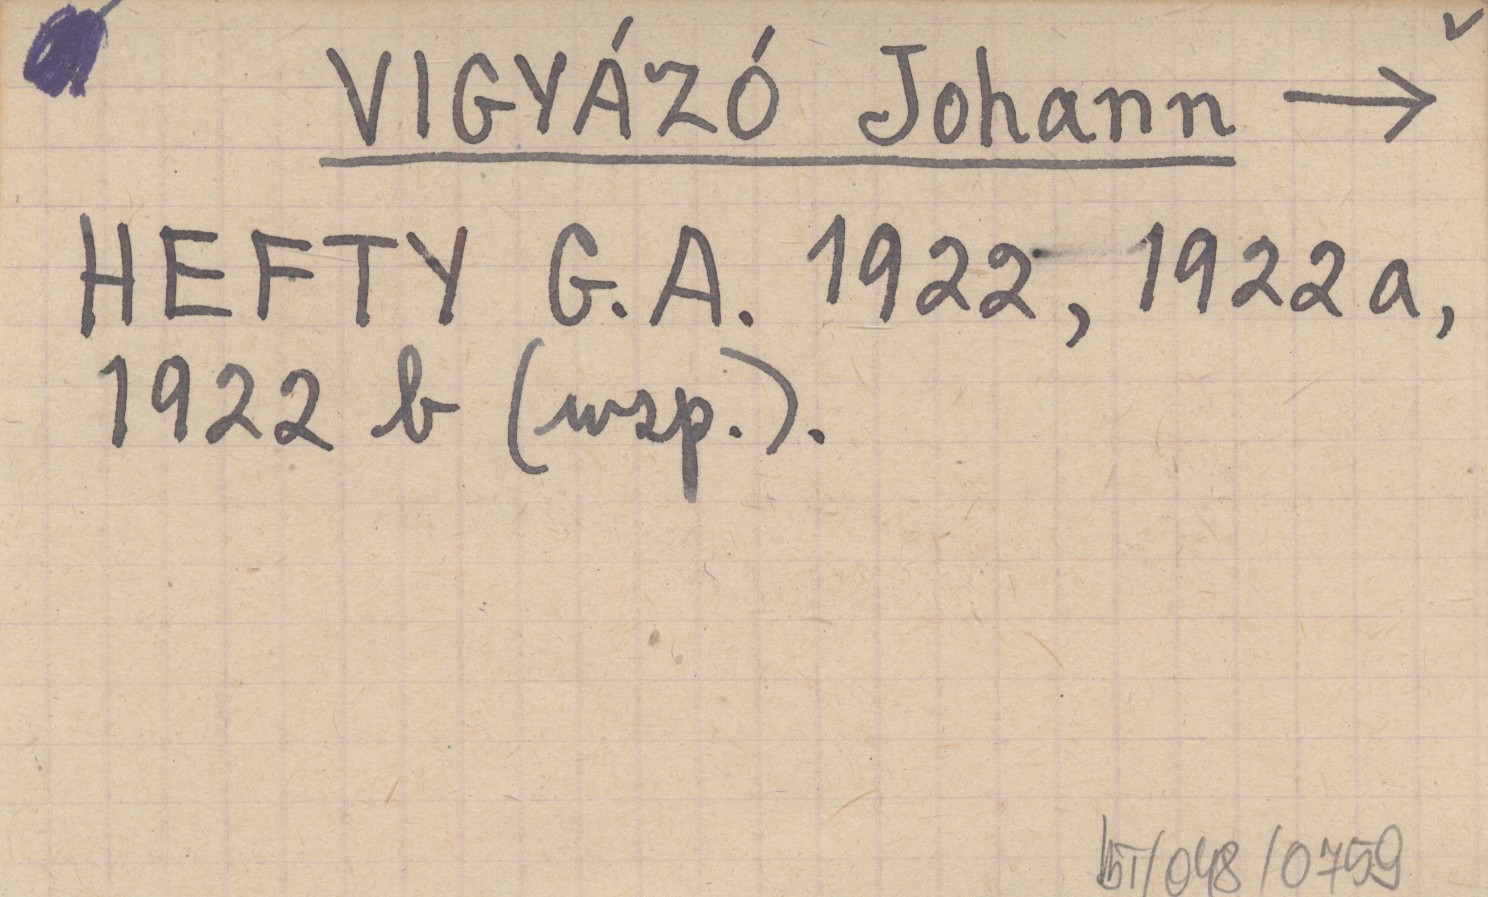 VIGYÁZÓ Johann →
HEFTY G.A. 1922, 1922a,
1922 b (wsp.).
BT/048/0759